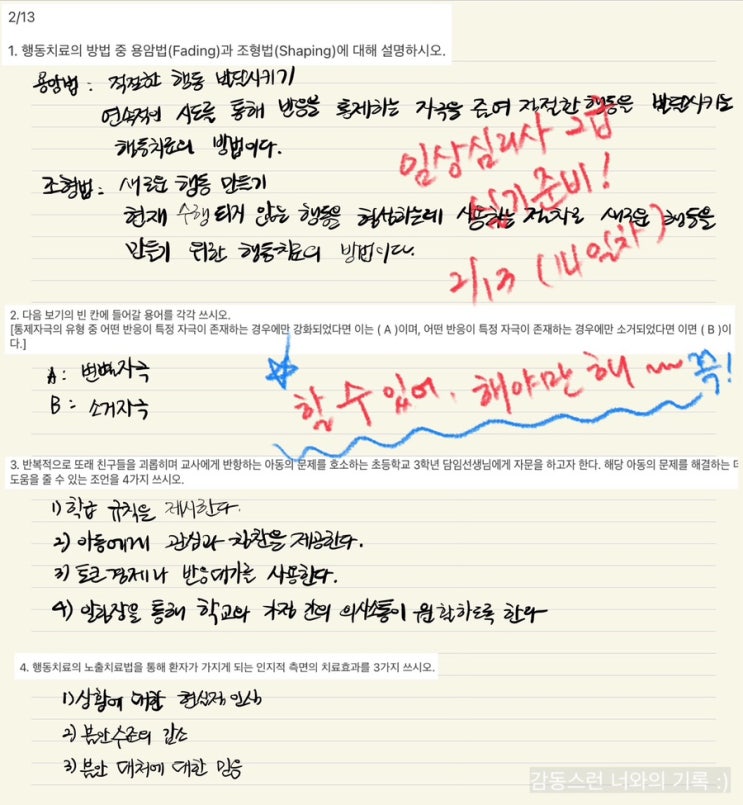 2/13
1. 행동치료의 방법 중 용암법(Fading)과 조형법(Shaping)에 대해 설명하시오.
용암법 : 적절한 행동 발달시키기
연속적인 시도를 통해 반응을 통제하는 자극을 줄여 적절한 행동을 발달시키는
행동치료의 방법이다.
조형법 : 새로운 행동 만들기
현재 수행 되지 않는 행동을 형성하는데 사용하는 절차로 새로운 행동을
만들기 위한 행동치료의 방법이다.
임상심리사 2급
실기 준비!
2/13 (14일차)
2. 다음 보기의 빈 칸에 들어갈 용어를 각각 쓰시오.
[통제자극의 유형 중 어떤 반응이 특정 자극이 존재하는 경우에만 강화되었다면 이는 ( A )이며, 어떤 반응이 특정 자극이 존재하는 경우에만 소거되었다면 이면 ( B )이
다.]
A : 변별자극
B : 소거자극
할 수 있어, 해야만 해 ~~ 쪽!
3. 반복적으로 또래 친구들을 괴롭히며 교사에게 반항하는 아동의 문제를 호소하는 초등학교 3학년 담임선생님에게 자문을 하고자 한다. 해당 아동의 문제를 해결하는 데
도움을 줄 수 있는 조언을 4가지 쓰시오.
1) 학급 규칙을 제시한다.
2) 아동에게 관심과 칭찬을 제공한다.
3) 토큰경제나 반응대가를 사용한다.
4) 알림장을 통해 학교와 가정 간의 의사소통이 원활하도록 한다
4. 행동치료의 노출치료법을 통해 환자가 가지게 되는 인지적 측면의 치료효과를 3가지 쓰시오.
1) 상황에 대한 현실적 인식
2) 불안수준의 감소
3) 불안 대처에 대한 믿음
감동스런 너와의 기록 :)